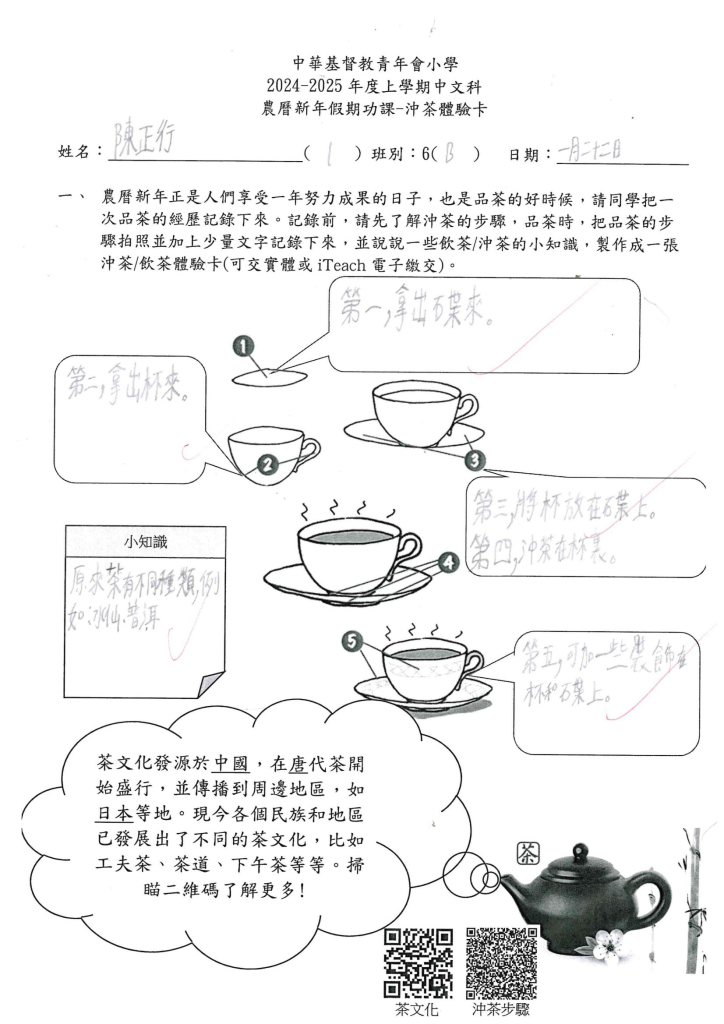 中華基督教青年會小學
2024-2025 年度上學期中文科
農曆新年假期功課-沖茶體驗卡
姓名：陳正行（ 1 ）班別：6( B ) 日期：一月二十二日
一、 農曆新年正是人們享受一年努力成果的日子，也是品茶的好時候，請同學把一
次品茶的經歷記錄下來。記錄前，請先了解沖茶的步驟，品茶時，把品茶的步
驟拍照並加上少量文字記錄下來，並說說一些飲茶/沖茶的小知識，製作成一張
沖茶/飲茶體驗卡(可交實體或 iTeach 電子繳交)。
第一,拿出石葉來。
1
第二,拿出杯來。
2
3
第三,將杯放在石葉上。
第四,沖茶在杯裏。
小知識
原來茶有不同種類,例
如:水仙、普洱
4
5
第五,可加一些裝飾在
杯和石葉上。
茶文化發源於中國，在唐代茶開
始盛行，並傳播到周邊地區，如
日本等地。現今各個民族和地區
已發展出了不同的茶文化，比如
工夫茶、茶道、下午茶等等。掃
瞄二維碼了解更多!
茶
茶文化
沖茶步驟